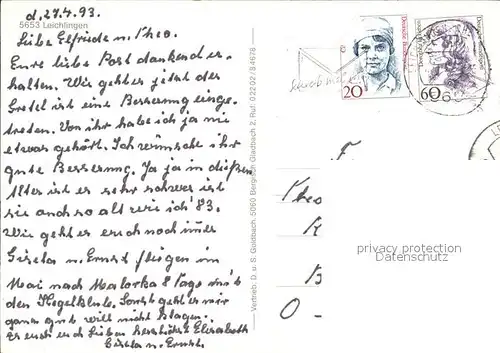 d. 27.4.93.
5653 Leichlingen
Liebe Elfriede u. Theo.
Eure liebe Post dankend er-
halten. Wie geht es jetzt der
Gretel ist eine Besserung einge-
treten. Von ihr habe ich ja nie
etwas gehört. Ich wünsche ihr
gute Besserung. Ja ja in diesen
Alter ist es sehr schwer ist
sie auch so alt wie ich 83.
Wie geht es euch noch immer
Gisela u. Ernst fliegen im
Mai nach Malorka 8 Tage mit
den Kegelklub. Sonst geht es mir
ganz gut will nicht klagen.
Es euch Lieben herzlichst Elisabeth
Gisela u. Ernst.
Vertrieb: D. u. S. Goldbach, 5060 Bergisch Gladbach 2, Ruf: 0 22 02 / 3 46 78
20
60
Deutsche Bundespost
Theo
K
B
O -
privacy protection
Datenschutz